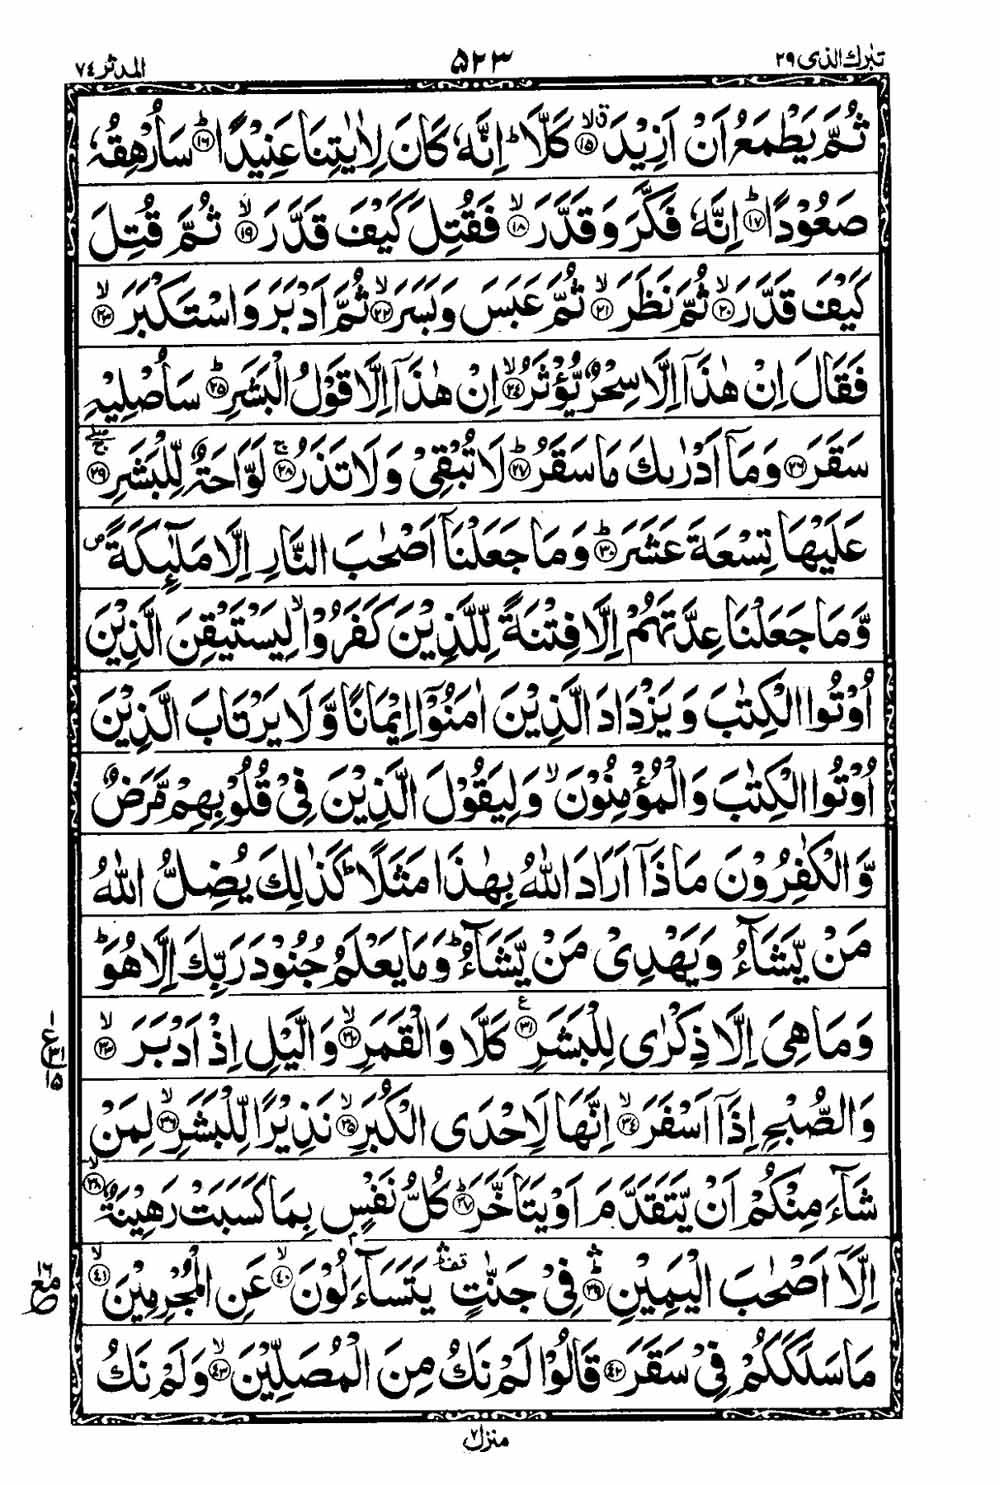 تبٰرك الذى ٢٩ ۵۲۳ المدثر ٧٤
ثُمَّ يَطْمَعُ اَنْ اَزِيْدَ ۙق ﴿۱۵﴾ كَلَّا ؕ اِنَّهٗ كَانَ لِاٰيٰتِنَا عَنِيْدًا ؕ ﴿۱۶﴾ سَاُرْهِقُهٗ
صَعُوْدًا ؕ ﴿۱۷﴾ اِنَّهٗ فَكَّرَ وَقَدَّرَ ۙ ﴿۱۸﴾ فَقُتِلَ كَيْفَ قَدَّرَ ۙ ﴿۱۹﴾ ثُمَّ قُتِلَ
كَيْفَ قَدَّرَ ۙ ﴿۲۰﴾ ثُمَّ نَظَرَ ۙ ﴿۲۱﴾ ثُمَّ عَبَسَ وَبَسَرَ ۙ ﴿۲۲﴾ ثُمَّ اَدْبَرَ وَاسْتَكْبَرَ ۙ ﴿۲۳﴾
فَقَالَ اِنْ هٰذَاۤ اِلَّا سِحْرٌ يُّؤْثَرُ ۙ ﴿۲۴﴾ اِنْ هٰذَاۤ اِلَّا قَوْلُ الْبَشَرِ ؕ ﴿۲۵﴾ سَاُصْلِيْهِ
سَقَرَ ﴿۲۶﴾ وَمَاۤ اَدْرٰىكَ مَا سَقَرُ ؕ ﴿۲۷﴾ لَا تُبْقِىْ وَلَا تَذَرُ ۚ ﴿۲۸﴾ لَوَّاحَةٌ لِّلْبَشَرِ ۖۚ ﴿۲۹﴾
عَلَيْهَا تِسْعَةَ عَشَرَ ؕ ﴿۳۰﴾ وَمَا جَعَلْنَاۤ اَصْحٰبَ النَّارِ اِلَّا مَلٰٓئِكَةً ص
وَّمَا جَعَلْنَا عِدَّتَهُمْ اِلَّا فِتْنَةً لِّلَّذِيْنَ كَفَرُوْا ۙ لِيَسْتَيْقِنَ الَّذِيْنَ
اُوْتُوا الْكِتٰبَ وَيَزْدَادَ الَّذِيْنَ اٰمَنُوْۤا اِيْمَانًا وَّلَا يَرْتَابَ الَّذِيْنَ
اُوْتُوا الْكِتٰبَ وَالْمُؤْمِنُوْنَ ۙ وَلِيَقُوْلَ الَّذِيْنَ فِىْ قُلُوْبِهِمْ مَّرَضٌ
وَّالْكٰفِرُوْنَ مَاذَاۤ اَرَادَ اللّٰهُ بِهٰذَا مَثَلًا ؕ كَذٰلِكَ يُضِلُّ اللّٰهُ
مَنْ يَّشَآءُ وَيَهْدِىْ مَنْ يَّشَآءُ ؕ وَمَا يَعْلَمُ جُنُوْدَ رَبِّكَ اِلَّا هُوَ ؕ
وَمَا هِىَ اِلَّا ذِكْرٰى لِلْبَشَرِ ع ﴿۳۱﴾ كَلَّا وَالْقَمَرِ ۙ ﴿۳۲﴾ وَالَّيْلِ اِذْ اَدْبَرَ ۙ ﴿۳۳﴾
۱ ع ۳۱ ۱۵
وَالصُّبْحِ اِذَاۤ اَسْفَرَ ۙ ﴿۳۴﴾ اِنَّهَا لَاِحْدَى الْكُبَرِ ۙ ﴿۳۵﴾ نَذِيْرًا لِّلْبَشَرِ ۙ ﴿۳۶﴾ لِمَنْ
شَآءَ مِنْكُمْ اَنْ يَّتَقَدَّمَ اَوْ يَتَاَخَّرَ ؕ ﴿۳۷﴾ كُلُّ نَفْسٍۢ بِمَا كَسَبَتْ رَهِيْنَةٌ ۙ ﴿۳۸﴾
اِلَّاۤ اَصْحٰبَ الْيَمِيْنِ ؕۛ ﴿۳۹﴾ فِىْ جَنّٰتٍ ۛقف يَتَسَآءَلُوْنَ ۙ ﴿۴۰﴾ عَنِ الْمُجْرِمِيْنَ ۙ ﴿۴۱﴾
۱۶ مع
مَا سَلَكَكُمْ فِىْ سَقَرَ ﴿۴۲﴾ قَالُوْا لَمْ نَكُ مِنَ الْمُصَلِّيْنَ ۙ ﴿۴۳﴾ وَلَمْ نَكُ
منزل ۷